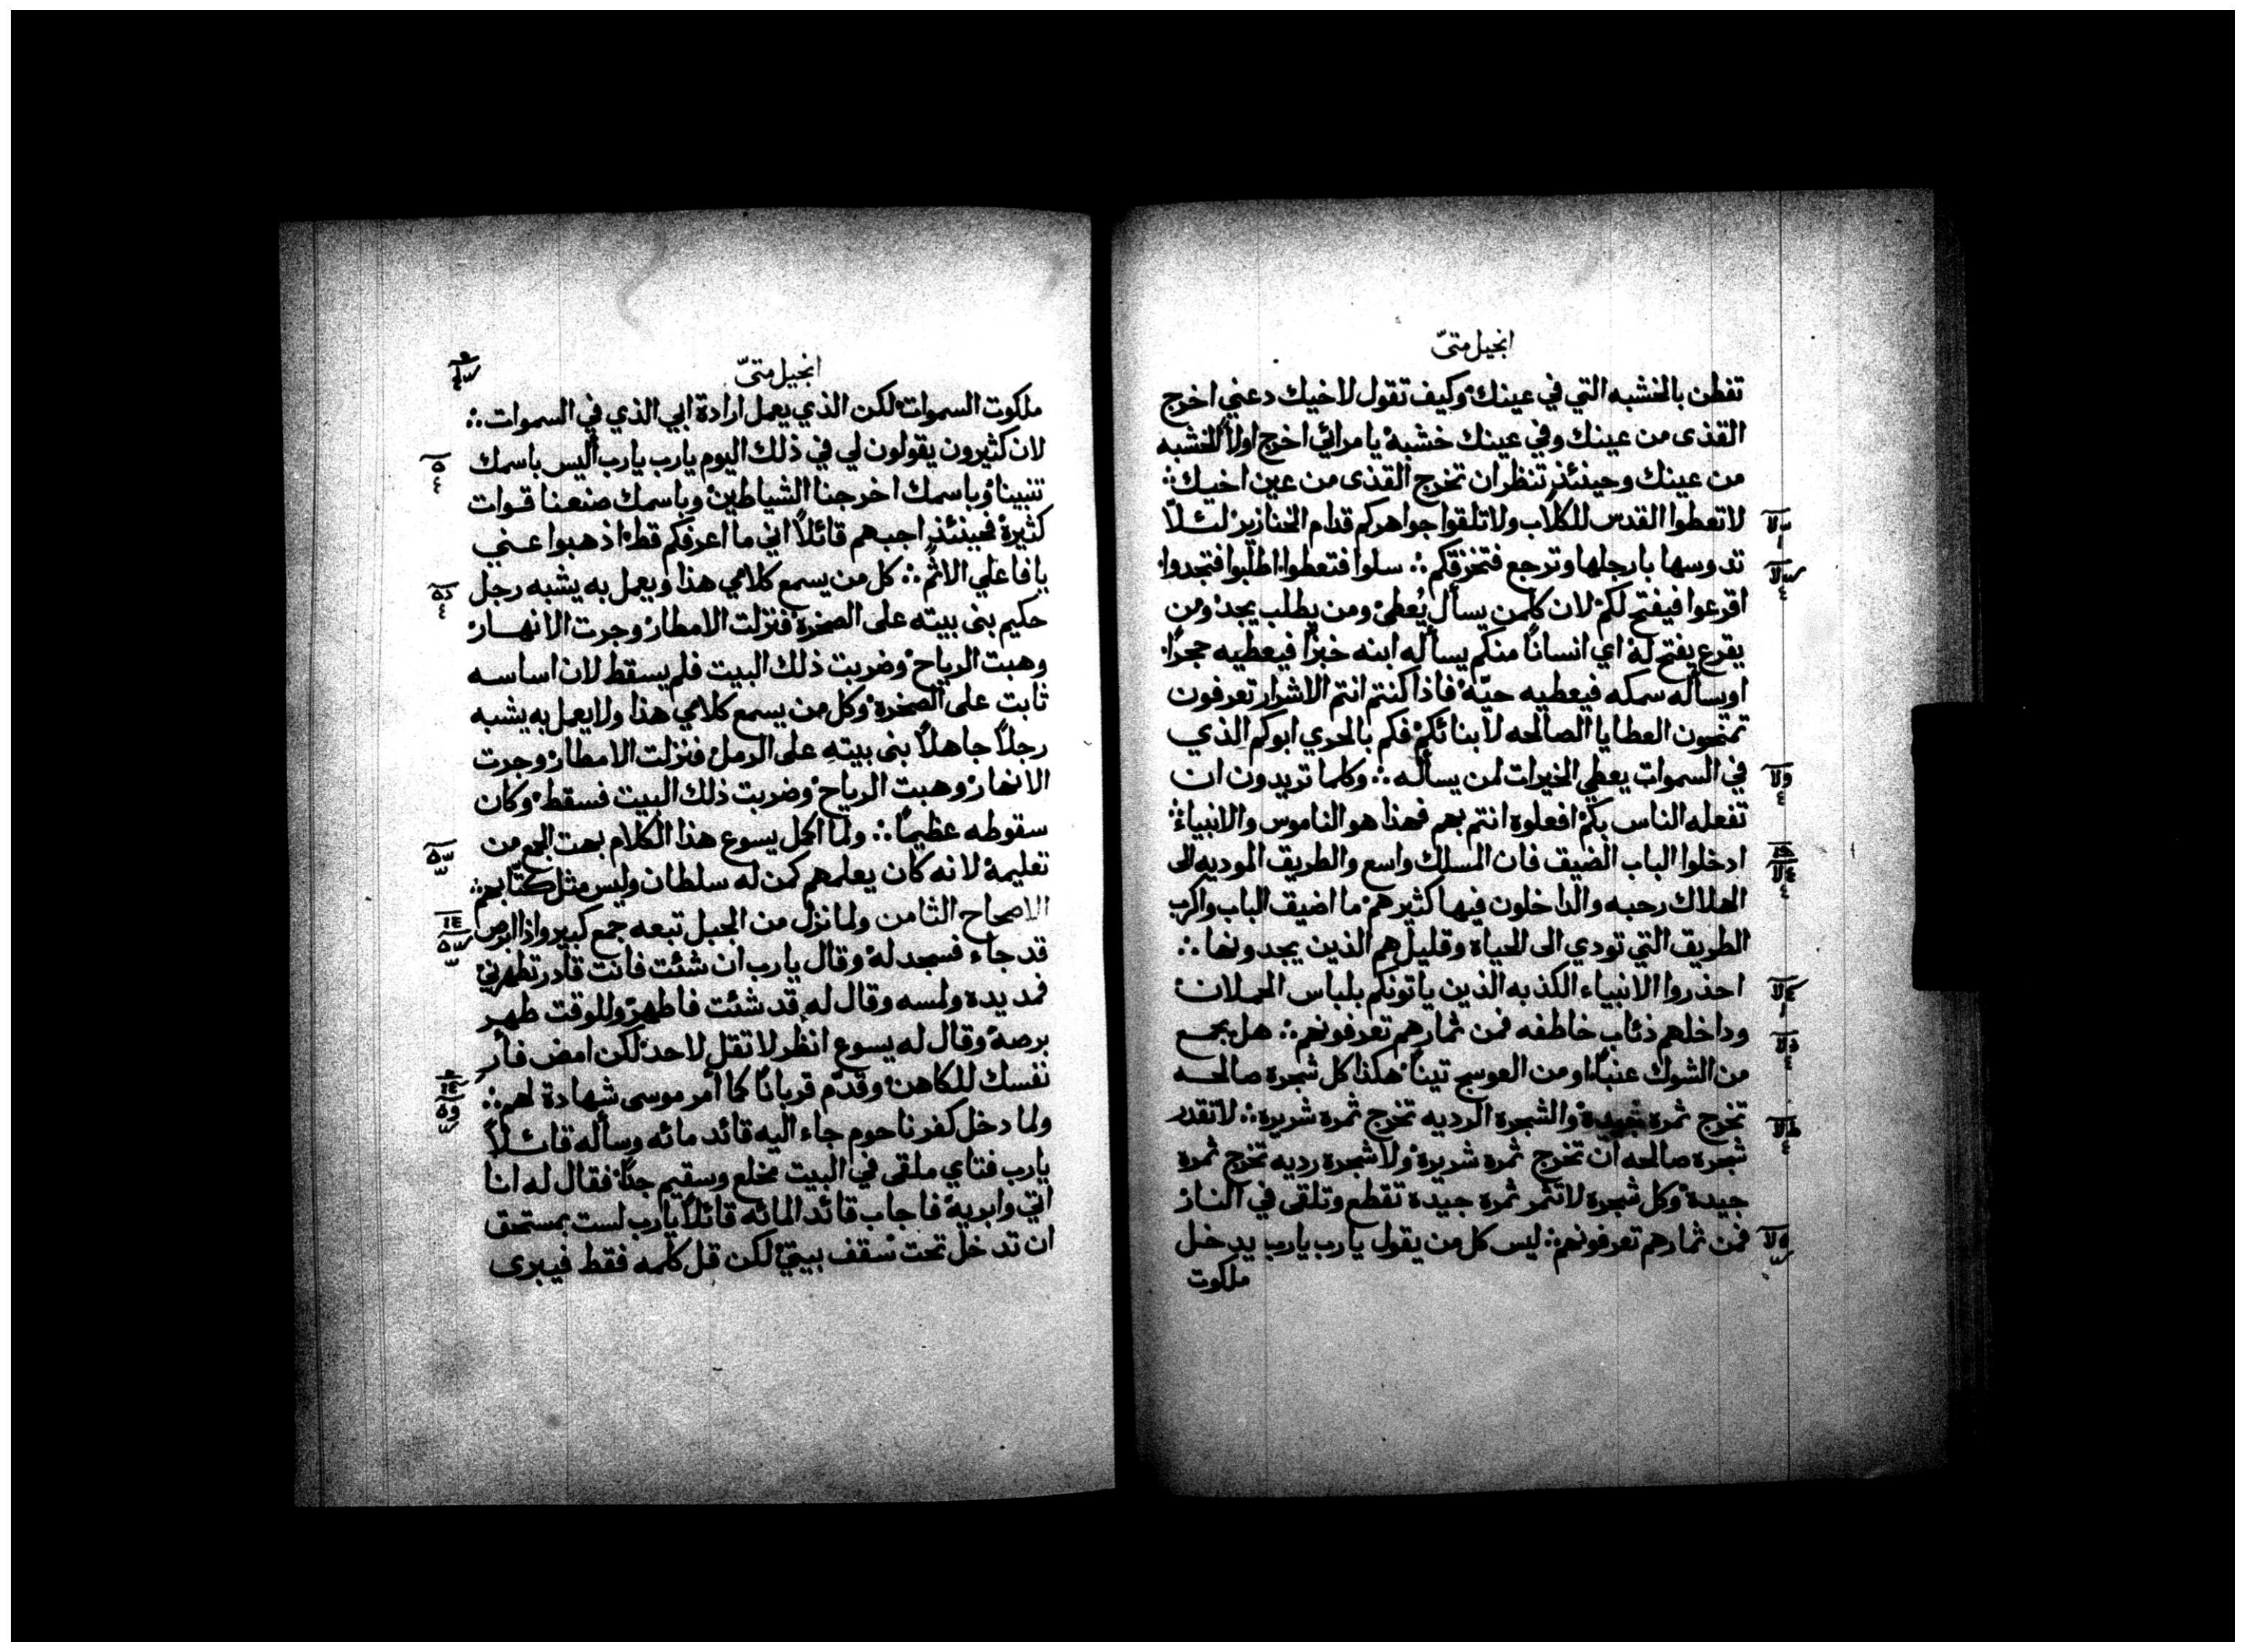 انجيل متىّ
تفطن بالخشبه التي في عينك وكيف تقول لاخيك دعني اخرج
القذى من عينك وفي عينك خشبة يا مرائي اخرج اولاً الخشبه
من عينك وحينئذٍ تنظر ان تخرج القذى من عين اخيك
لا تعطوا القدس للكلاب ولا تلقوا جواهركم قدام الخنازير لئلاّ
تدوسها بارجلها وترجع فتمزقكم ∴ سلوا فتعطوا اطلبوا فتجدوا
اقرعوا فيفتح لكم لان كلمن يسأل يُعطى ومن يطلب يجد ومن
يقرع يفتح له اي انساناً منكم يسأله ابنه خبزاً فيعطيه حجراً
او يسأله سمكه فيعطيه حيّة فاذا كنتم انتم الاشرار تعرفون
تمنحون العطايا الصالحه لابنائكم فكم بالحري ابوكم الذي
في السموات يعطي الخيرات لمن يسأله ∴ وكلما تريدون ان
تفعله الناس بكم افعلوه انتم بهم فهذا هو الناموس والانبياء
ادخلوا الباب الضيق فان المسلك واسع والطريق الموديه الى
الهلاك رحبه والداخلون فيها كثير هم ما اضيق الباب واكرب
الطريق التي تودي الى الحياه وقليل هم الذين يجدونها ∴
احذروا الانبياء الكذبه الذين ياتونكم بلباس الحملان
وداخلهم ذئاب خاطفه فمن ثمارهم تعرفونهم ∴ هل يجمع
من الشوك عنباً او من العوسج تيناً هكذا كل شجرة صالحه
تخرج ثمرة جيدة والشجرة الرديه تخرج ثمرة شريرة ∴ لا تقدر
شجرة صالحه ان تخرج ثمرة شريرة ولا شجرة رديه تخرج ثمرة
جيدة وكل شجرة لا تثمر ثمرة جيدة تقطع وتلقى في النار
فمن ثمارهم تعرفونهم ∴ ليس كل من يقول يا رب يا رب يدخل
ملكوت
انجيل متىّ
ملكوت السموات لكن الذي يعمل ارادة ابي الذي في السموات ∴
لان كثيرون يقولون لي في ذلك اليوم يا رب يا رب أليس باسمك
تنبينا وباسمك اخرجنا الشياطين وباسمك صنعنا قوات
كثيرة فحينئذٍ اجبهم قائلاً اني ما اعرفكم قط اذهبوا عني
يا فاعلي الاثم ∴ كل من يسمع كلامي هذا ويعمل به يشبه رجل
حكيم بنى بيته على الصخرة فنزلت الامطار وجرت الانهار
وهبت الرياح وضربت ذلك البيت فلم يسقط لان اساسه
ثابت على الصخرة وكل من يسمع كلامي هذا ولا يعمل به يشبه
رجلاً جاهلاً بنى بيته على الرمل فنزلت الامطار وجرت
الانهار وهبت الرياح وضربت ذلك البيت فسقط وكان
سقوطه عظيماً ∴ ولما اكمل يسوع هذا الكلام بهت الجمع من
تعليمه لانه كان يعلمهم كمن له سلطان وليس مثل كتّابهم ∴
الاصحاح الثامن ولما نزل من الجبل تبعه جمع كبير واذا ابرص
قد جاء فسجد له وقال يا رب ان شئت فانت قادر تطهرني
فمد يده ولمسه وقال له قد شئت فاطهر وللوقت طهر
برصه وقال له يسوع انظر لا تقل لاحد لكن امض فأر
نفسك للكاهن وقدّم قرباناً كما امر موسى شهادة لهم ∴
ولما دخل كفرناحوم جاء اليه قائد مائه وسأله قائلاً
يا رب فتاي ملقى في البيت مخلع وسقيم جداً فقال له انا
اتي وابريه فاجاب قائد المائه قائلاً يا رب لست بمستحق
ان تدخل تحت سقف بيتي لكن قل كلمه فقط فيبرى